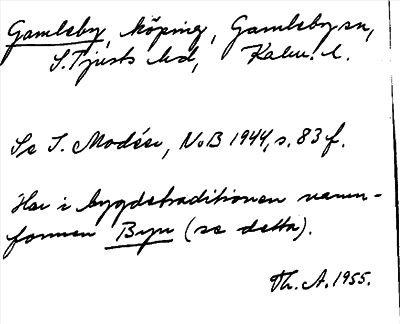 Gamleby, köping, Gamleby sn,
S. Tjusts hd, Kalm. l.
Se I. Modéer, NoB 1944, s. 83 f.
Har i bygdetraditionen namn-
formen Byn (se detta).
Th. A. 1955.